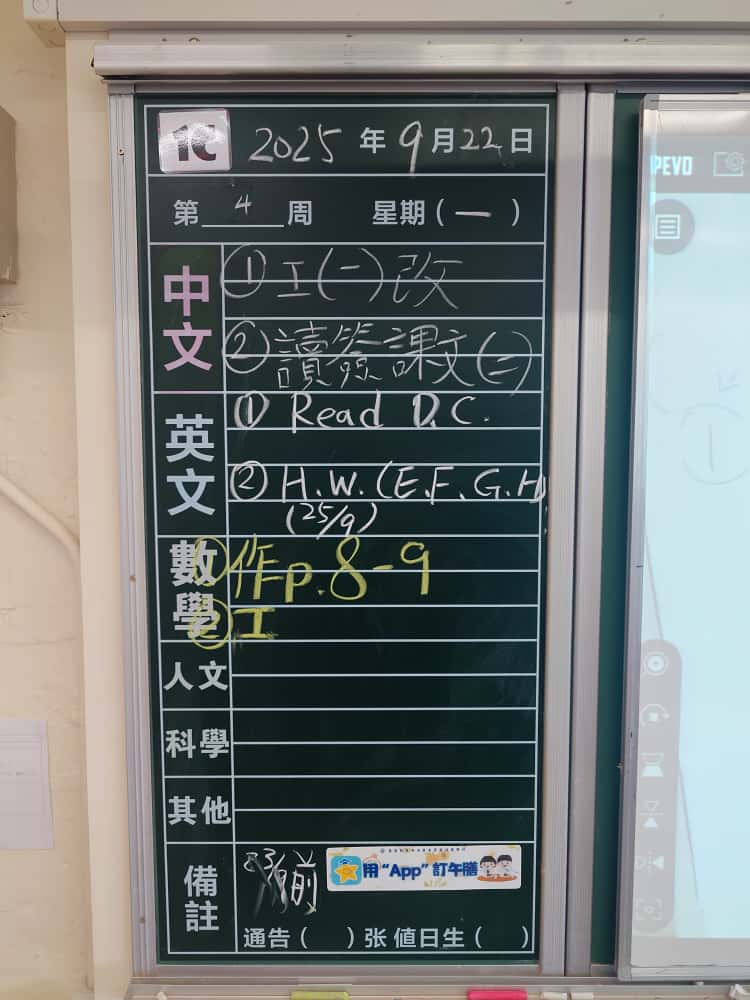 1C 2025年9月22日
第 4 周 星期(一)
中文
①工(一)改
②讀簽課文(二)
英文
① Read D.C.
② H.W. (E.F.G.H)
(25/9)
數學
①作p.8-9
②工
人文
科學
其他
備註
23/9前
用“App”訂午膳
通告( )张 值日生( )
PEVO